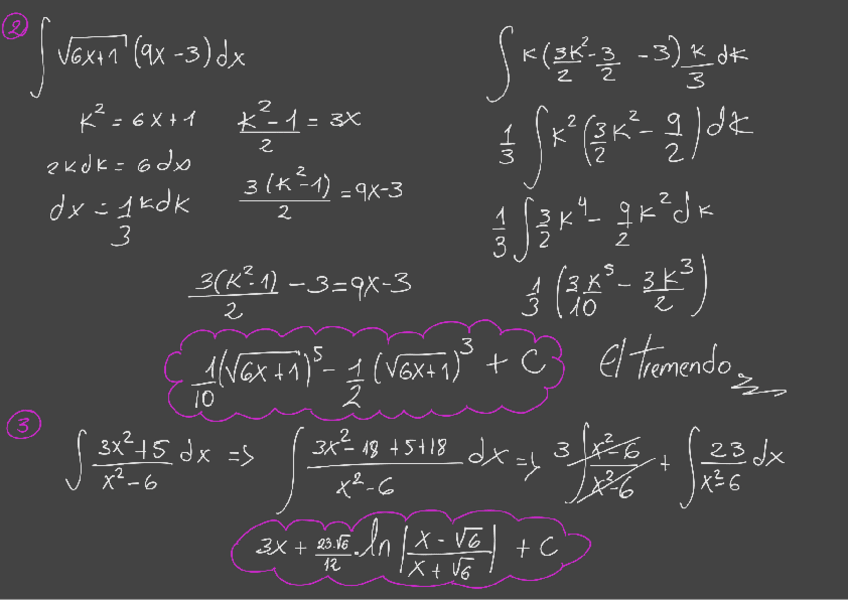 2
∫ √(6x+1) (9x-3) dx
k² = 6x+1
2kdk = 6dx
dx = 1/3 kdk
(k²-1)/2 = 3x
3(k²-1)/2 = 9x-3
3(k²-1)/2 - 3 = 9x-3
∫ k(3k²/2 - 3/2 - 3) k/3 dk
1/3 ∫ k² (3/2 k² - 9/2) dk
1/3 ∫ 3/2 k⁴ - 9/2 k² dk
1/3 (3k⁵/10 - 3k³/2)
1/10 (√(6x+1))⁵ - 1/2 (√(6x+1))³ + C
El Tremendo
3
∫ (3x²+5)/(x²-6) dx => ∫ (3x²-18+5+18)/(x²-6) dx => 3 ∫ (x²-6)/(x²-6) + ∫ 23/(x²-6) dx
3x + 23·√6/12 · ln |(x-√6)/(x+√6)| + C